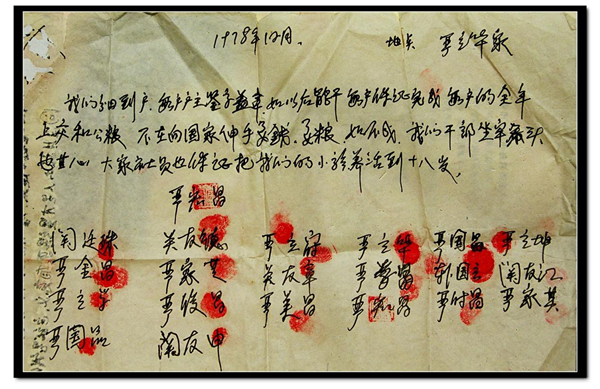 1978年12月. 地点 严立华家
我们分田到户,每户户主签字盖章,如以后能干,每户保证完成每户的全年
上交和公粮,不在向国家伸手要钱,要粮,如不成,我们干部坐牢杀头
也甘心,大家社员也保证把我们的小孩养活到十八岁。
严宏昌
关廷珠 关友德 严立符 严立华 严国昌 严立坤
严金昌 严家芝 关友章 严学昌 韩国云 关友江
严立学 严俊昌 严美昌 严宏昌 严付昌 严家其
严国品 关友申